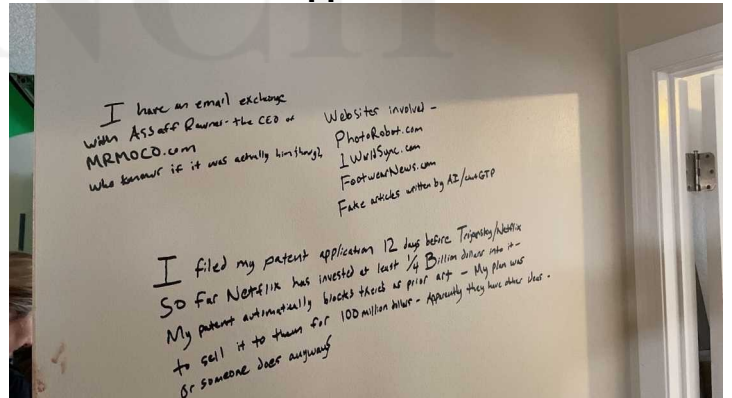 I have an email exchange
with Assaff Rawner - the CEO of
MRMOCO.com
who knows if it was actually him though
Websites involved -
PhotoRobot.com
1WorldSync.com
FootwearNews.com
Fake articles written by AI/chatGTP
I filed my patent application 12 days before Tripensky/Netflix
So far Netflix has invested at least 1/4 Billion dollars into it -
My patent automatically blocks theirs as prior art - My plan was
to sell it to them for 100 million dollars - Apparently they have other ideas -
Or someone does anyways